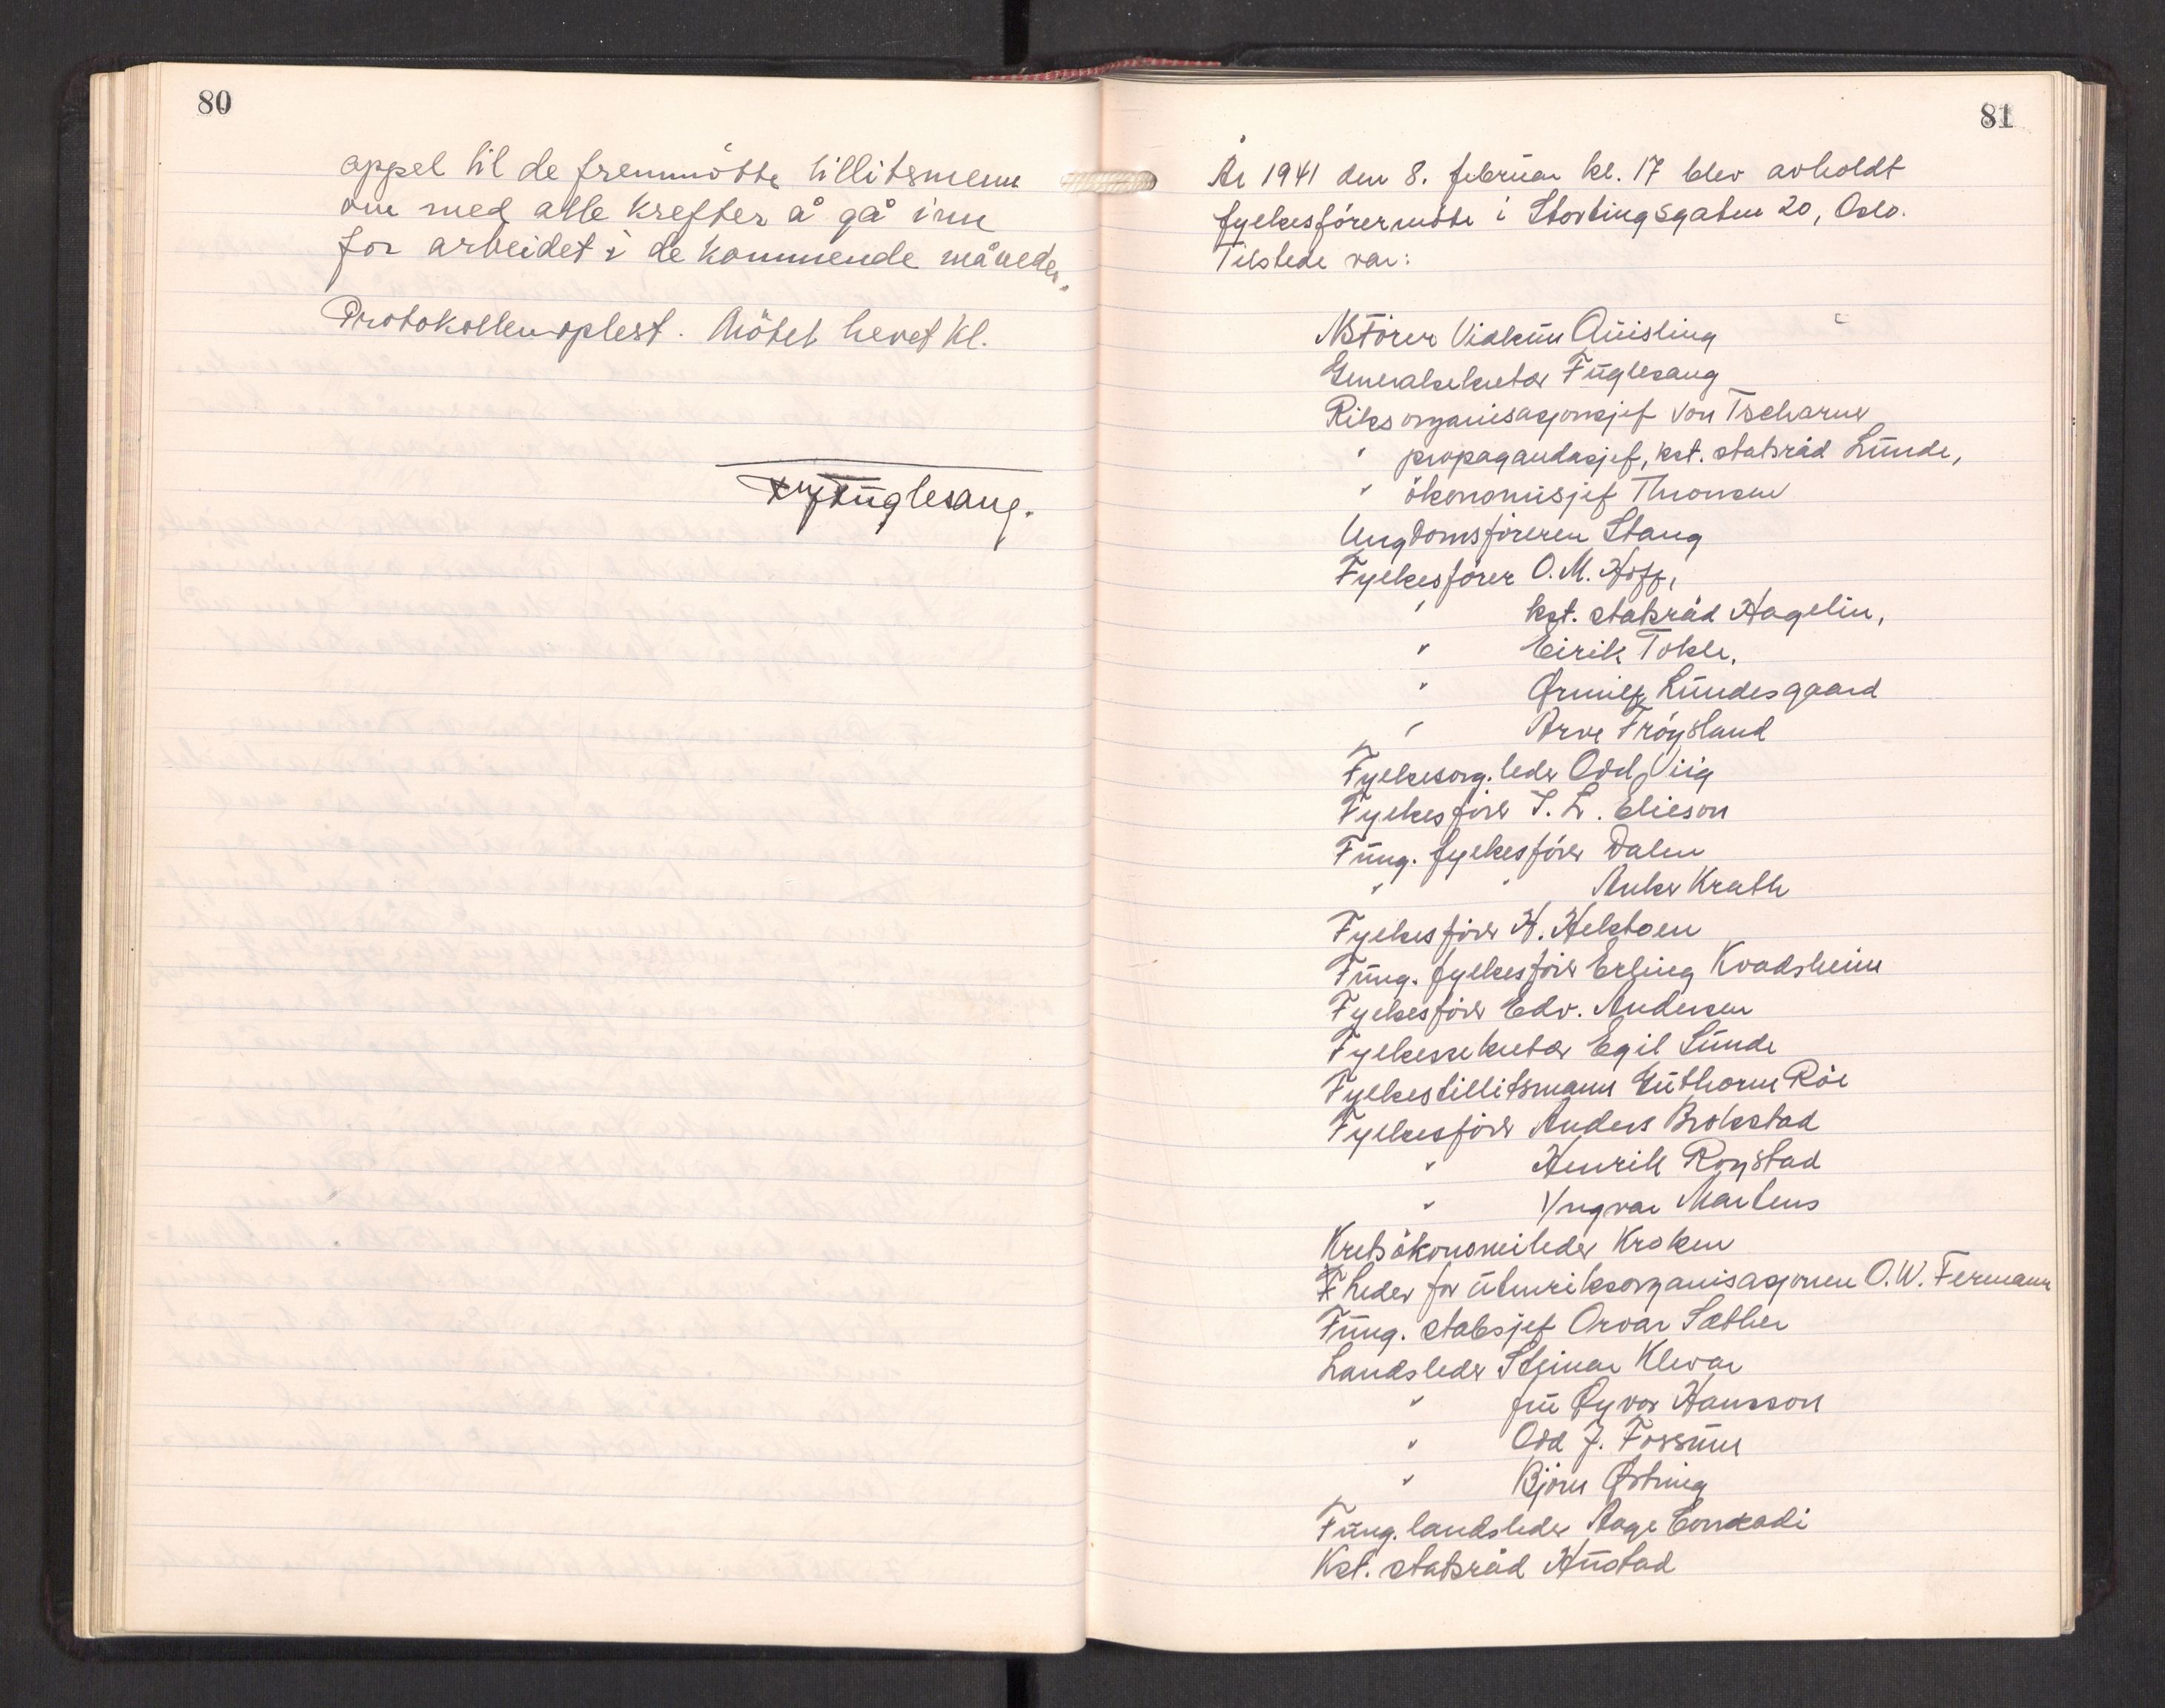 80
appel til de fremmötte tillitsmenn
om med alle krefter å gå inn
for arbeidet i de kommende måneder.
Protokollen oplest. Mötet hevet kl.
Fuglesang.
81
År 1941 den 8. februar kl. 17 blev avholdt
fylkesförermöte i Stortingsgaten 20, Oslo.
Tilstede var:
NSförer Vidkun Quisling
Generalsekretær Fuglesang
Riksorganisasjonsjef von Tscharner
" propagandasjef, kst. statsråd Lunde,
" ökonomisjef Thronsen
Ungdomsföreren Stang
Fylkesförer O. M. Hoff,
" kst. statsråd Hagelin,
" Eirik Tokle,
" Ørnulf Lundesgaard
" Arve Fröysland
Fylkesorg. leder Odd Viig
Fylkesförer I. L. Elieson
Fung. fylkesförer Dalen
" " Anker Krath
Fylkesförer H. Hektoen
Fung. fylkesförer Erling Kvadsheim
Fylkesförer Edv. Andersen
Fylkessekretær Egil Sunde
Fylkestillitsmann Guthorm Röe
Fylkesförer Anders Brokstad
" Henrik Rogstad
" Yngvar Martens
Kretsökonomileder Kroken
Leder for utenriksorganisasjonen O. W. Fermann
Fung. stabsjef Orvar Sæther
Landsleder Steinar Klevar
" fru Öyvor Hansson
" Odd J. Fossum
" Björn Østring
Fung. landsleder Aage Conradi
Kst. statsråd Hustad